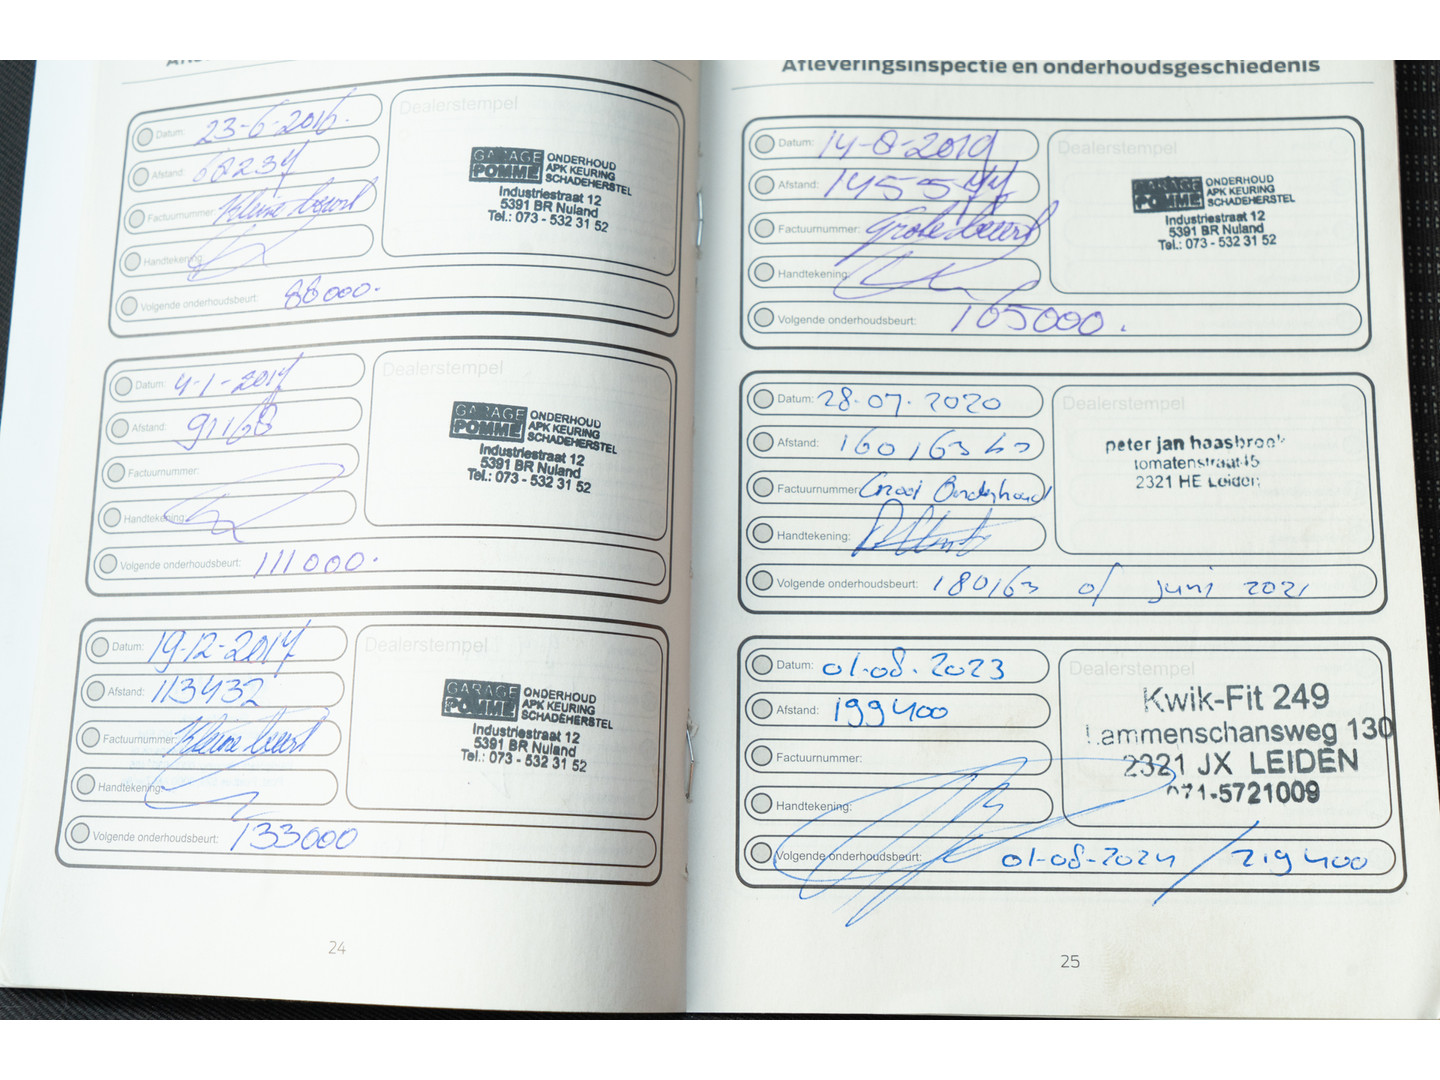 Afleveringsinspectie en onderhoudsgeschiedenis
Datum: 23-6-2016.
Afstand: 68237
Factuurnummer: Kleine beurt
Handtekening:
Volgende onderhoudsbeurt: 88000.
Dealerstempel
GARAGE POMME
ONDERHOUD
APK KEURING
SCHADEHERSTEL
Industriestraat 12
5391 BR Nuland
Tel.: 073 - 532 31 52
Datum: 4-1-2017
Afstand: 91168
Factuurnummer:
Handtekening:
Volgende onderhoudsbeurt: 111000.
Dealerstempel
GARAGE POMME
ONDERHOUD
APK KEURING
SCHADEHERSTEL
Industriestraat 12
5391 BR Nuland
Tel.: 073 - 532 31 52
Datum: 19-12-2017
Afstand: 113432
Factuurnummer: Kleine beurt
Handtekening:
Volgende onderhoudsbeurt: 133000
Dealerstempel
GARAGE POMME
ONDERHOUD
APK KEURING
SCHADEHERSTEL
Industriestraat 12
5391 BR Nuland
Tel.: 073 - 532 31 52
24
Datum: 14-8-2019
Afstand: 145577
Factuurnummer: Grote beurt
Handtekening:
Volgende onderhoudsbeurt: 165000.
Dealerstempel
GARAGE POMME
ONDERHOUD
APK KEURING
SCHADEHERSTEL
Industriestraat 12
5391 BR Nuland
Tel.: 073 - 532 31 52
Datum: 28-07-2020
Afstand: 160163 km
Factuurnummer: Groot Onderhoud
Handtekening:
Volgende onderhoudsbeurt: 180163 of juni 2021
Dealerstempel
peter jan haasbroek
tomatenstraat 15
2321 HE Leiden
Datum: 01-08-2023
Afstand: 199400
Factuurnummer:
Handtekening:
Volgende onderhoudsbeurt: 01-08-2024 / 219400
Dealerstempel
Kwik-Fit 249
Lammenschansweg 130
2321 JX LEIDEN
071-5721009
25